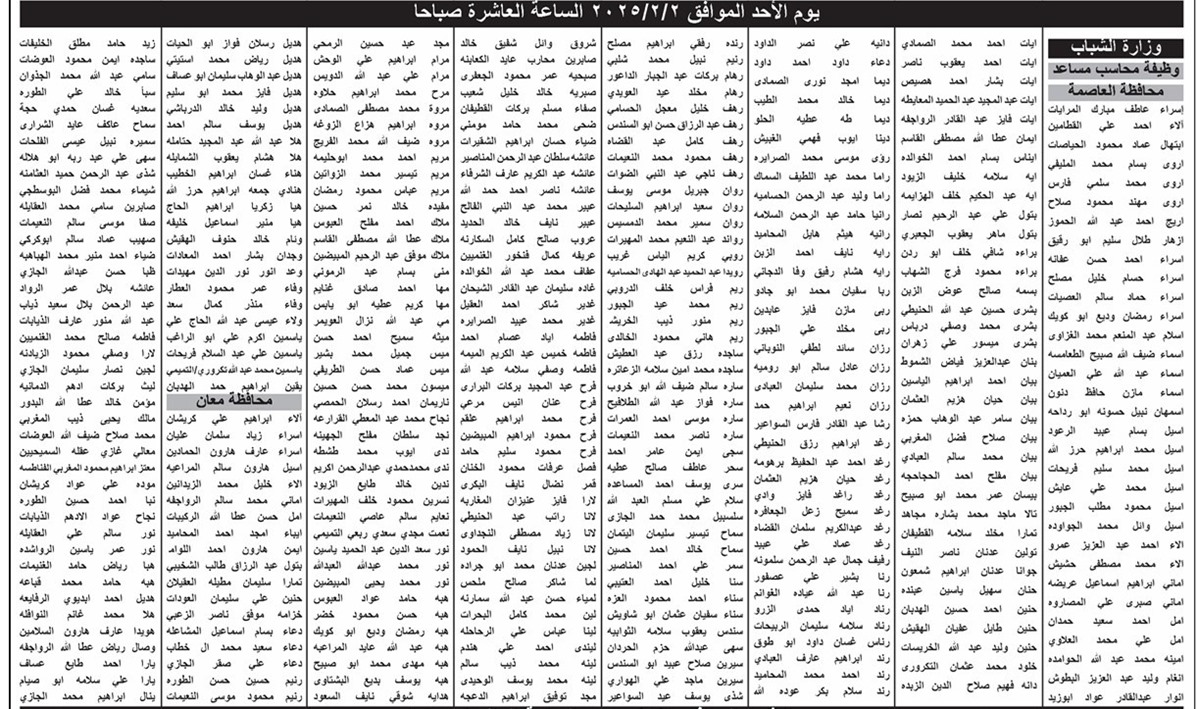 يوم الأحد الموافق ٢٠٢٥/٢/٢ الساعة العاشرة صباحا
وزارة الشباب
وظيفة محاسب مساعد
محافظة العاصمة
إسراء عاطف مبارك المرايات
آلاء احمد علي القطامين
ابتهال عماد محمود الحياصات
اروى بسام محمد المليفي
اروى محمد سلمي فارس
اروى مهند محمود صلاح
اريج احمد عبد الله الحموز
ازهار طلال سليم ابو رقيق
اسراء احمد حسن عفانه
اسراء حسام خليل مصلح
اسراء حماد سالم العصيات
اسراء رمضان وديع ابو كويك
اسلام عبد المنعم محمد الغزاوي
اسماء ضيف الله صبيح الطعامسه
اسماء عبد الله علي العميان
اسماء مازن حافظ دنون
اسمهان نبيل حسونه ابو رداحه
اسيل بسام عبيد الرعود
اسيل محمد ابراهيم حرز الله
اسيل محمد سليم فريحات
اسيل محمد علي عايش
اسيل محمود مطلب الجبور
اسيل وائل محمد الجواوده
الاء احمد عبد العزيز عمرو
الاء محمد مصطفى حشيش
اماني ابراهيم اسماعيل عريضه
اماني صبري علي المصاروه
امل احمد سعيد حمدان
امل علي محمد العلاوي
امينه محمد عبد الله الحوامده
انغام وليد عبد العزيز البطوش
انوار عبدالقادر عواد ابوزيد
ايات احمد محمد الصمادي
ايات احمد يعقوب ناصر
ايات بشار احمد هصيص
ايات عبد المجيد عبد الحميد المعايطه
ايات فايز عبد القادر الرواجفه
ايمان عطا الله مصطفى القاسم
ايناس بسام احمد الخوالده
ايه سلامه خليف الزيود
ايه عبد الحكيم خلف الهزايمه
بتول علي عبد الرحيم نصار
بتول ماهر يعقوب الجعبري
براءه شافي خلف ابو ردن
براءه محمود فرج الشهاب
بسمه صالح عوض الزبن
بشرى حسين عبد الله الحنيطي
بشرى محمد وصفي درباس
بشرى ميسور علي زهران
بنان عبدالعزيز فياض الشموط
بيان احمد ابراهيم الياسين
بيان حيان هزيم العثمان
بيان سامر عبد الوهاب حمزه
بيان صلاح فضل المغربي
بيان محمد سالم العبادي
بيان مفلح احمد الحجاحجه
بيسان عمر محمد ابو صبيح
تالا ماجد محمد بشاره مجاهد
تمارا مخلد سلامه القطيفان
تولين عدنان ناصر النيف
جوانا عدنان ابراهيم شمعون
حنان سهيل ياسين عبنده
حنين احمد حسين الهدبان
حنين طايل عفيان الهقيش
حنين وليد عبد الله الخريسات
خلود محمد عثمان التكروري
دانه فهيم صلاح الدين الزبده
دانيه علي نصر الداود
دعاء داود احمد داود
ديما امجد نوري الصمادي
ديما خالد محمد الطيب
ديما طه عطيه الحلو
دينا ايوب فهمي الغيش
رؤى موسى محمد الصرايره
راما محمد عبد اللطيف السماك
راما وليد عبد الرحمن الحساميه
رانيا حامد عبد الرحمن السلامه
رانيه هيثم هايل المحاميد
رايه نايف احمد الزبن
رايه هشام رفيق وفا الدجاني
ربا سفيان محمد ابو جادو
ربى مازن فايز عابدين
ربى مخلد علي الجبور
رزان سائد لطفي النوباني
رزان عادل سالم ابو روميه
رزان محمد سليمان العبادي
رزان نعيم ابراهيم حمد
رشا عبد القادر فارس السواعير
رغد ابراهيم رزق الحنيطي
رغد احمد عبد الحفيظ برهومه
رغد حيان هزيم العثمان
رغد راغد فايز وادي
رغد سميح زعل الجعافره
رغد عبدالكريم سلمان القضاه
رغد عماد علي عبيد
رفيف جمال عبد الرحمن سلمونه
رنا بشير علي عصفور
رنا عبد الله عياده الغوانم
رناد اياد حمدي الزرو
رناد سلامه سليمان الربيحات
رناس غسان داود ابو طوق
رند ابراهيم عارف العبادي
رند سلام بكر عوده الله
رنده رفقي ابراهيم مصلح
رنيم نبيل محمد شلبي
رهام بركات عبد الجبار الداعور
رهام مخلد عيد العويدي
رهف خليل معجل الحسامي
رهف عبد الرزاق حسن ابو السندس
رهف كامل عبد القضاه
رهف محمود محمد النعيمات
رهف ناجي عبد النبي الضوات
روان جبريل موسى يوسف
روان سعيد ابراهيم السليحات
روان سمير محمد الدمسيس
روائد عبد النعيم محمد المهيرات
روبي كريم الياس غريب
رويدا عبد الحميد عبد الهادي الحساميه
ريم فراس خلف الدروبي
ريم محمد عبد الجبور
ريم منور ذيب الخريشه
ريم هاني محمود الخالدي
ساجده رزق عبد العطيش
ساجده محمد امين سلامه الزعاتره
ساره سالم ضيف الله ابو خروب
ساره فواز عبد الله الطلافيح
ساره موسى احمد العمرات
ساره ناصر محمد النعيمات
سجى ايمن عامر احمد
سحر عاطف صالح عطيه
سرى يوسف احمد المساعده
سلام علي مسلم العبد الله
سلسبيل محمد حمد الجازي
سماح تيسير سليمان اليتمان
سماح خالد احمد حسين
سمر علي احمد المناصير
سنا خليل احمد العتيبي
سناء احمد محمود العزه
سناء سفيان عثمان ابو شاويش
سندس يعقوب سلامه الثوابيه
سهى عبدالله حزم الحردان
سيرين صلاح عبيد ابو السندس
سيرين ماجد علي الهواري
شذى يوسف عيد السواعير
شروق وائل شفيق خالد
صابرين محارب عايد الكعابنه
صبحيه عمر محمود الجعفري
صبريه خالد خليل شعيب
صفاء مسلم بركات القطيفان
ضحى محمد حامد مومني
ضياء حسان ابراهيم الشقيرات
عائشه سلطان عبد الرحمن المناصير
عائشه عبد الكريم عارف الشرفاء
عائشه ناصر احمد حمد الله
عبير محمد عبد النبي الفالح
عبير نايف خالد الحديد
عروب صالح كامل السكارنه
عريفه كمال فنخور الغنميين
عفاف محمد عبد الله الخوالده
غاده سليمان عبد القادر الشيحان
غدير شاكر احمد العقيل
غدير محمد عبيد الصرايره
فاطمه اياد عصام احمد
فاطمه خميس عبد الكريم الميمه
فاطمه وصفي سلامه عبد الله
فرح عبد المجيد بركات البراري
فرح عدنان انيس مرعي
فرح محمد ابراهيم علقم
فرح محمود ابراهيم المبيضين
فرح محمود سليم حامد
فصل عرفات محمود الختان
قمر نضال نايف البكري
لارا فايز عنيزان المغاربه
لانا راتب عبد الحنيطي
لانا زياد مصطفى النجداوي
لانا نبيل نايف الحمود
لجين عدنان محمد ابو جراده
لما شاكر صالح ملحس
لمياء حسن عبد الله سمارنه
لين محمد كامل البحرات
لينا عباس علي الرحاحله
ليندى احمد علي هندم
لينه محمد ذيب سالم
لينه محمد يوسف الوحيدي
مجد توفيق ابراهيم الدعجه
مجد عبد حسين الرمحي
مرام ابراهيم علي الوحش
مرام علي عبد الله الدويس
مرح محمد ابراهيم حلاوه
مروة محمد مصطفى الصمادي
مروه ابراهيم هزاع الزوغه
مروه ضيف الله محمد الفريح
مريم احمد محمد ابوحليمه
مريم تيسير محمد الزواتين
مريم عباس محمود رمضان
مفيده خالد نمر حسين
ملاك احمد مفلح العبوس
ملاك عطا الله مصطفى القاسم
ملاك موفق عبد الرحيم المبيضين
منى بسام عبد الرموني
مها احمد صادق غنايم
مها كريم عطيه ابو يابس
مي عبد الله نزال العويمر
ميثه سميح احمد حسن
ميس جميل محمد بشير
ميس عماد حسن الطريفي
ميسون محمد حسن حسين
ناريمان احمد ارسلان الحمصي
نجاح محمد عبد المعطي القرارعه
نجد سلطان مفلح الجهينه
ندى ايوب محمد طشطه
ندى محمدحمدي عبدالرحمن اكريم
ندين خالد طايع الزيود
نسرين محمود خلف المهيرات
نعايم سالم عاصي النعيمات
نعمت مجدي سعدي ربعي التميمي
نور سعد الدين عبد الحميد ياسين
نور محمد عبدالله العبدالله
نور محمد يحيى المبيضين
هبه حامد عواد العبوس
هبه حسن محمود خضر
هبه رمضان وديع ابو كويك
هبه عبد الله عايد المراعيه
هبه مهدي محمد ابو صبيح
هبه يوسف بديع البشتاوي
هدايه شوقي نايف السعود
هديل رسلان فواز ابو الحيات
هديل رياض محمد استيتي
هديل عبد الوهاب سليمان ابو عساف
هديل فايز محمد ابو سليم
هديل وليد خالد الدرباشي
هديل يوسف سالم احمد
هلا عبد الله عبد المجيد حتامله
هلا هشام يعقوب الشمايله
هناء غسان ابراهيم الخطيب
هنادي جمعه ابراهيم حرز الله
هيا زكريا ابراهيم الحاج
هيا منير اسماعيل خليفه
ونام خالد حنوف الهقيش
وجدان بشار احمد المعادات
وعد انور نور الدين مهيدات
وفاء عمر محمود العطار
وفاء منذر كمال سعد
ولاء عيسى عبد الله الحاج علي
ياسمين اكرم علي ابو الراغب
ياسمين علي عبد السلام فريحات
ياسمين محمد عبد الله تكروري/التميمي
يقين ابراهيم حمد الهدبان
محافظة معان
آلاء ابراهيم علي كريشان
اسراء زياد سلمان عليان
اسراء عارف هارون الحمادين
اسيل هارون سالم المراعيه
الاء خليل محمد الزيدانين
اماني محمد سالم الرواجفه
امل حسن عطا الله الركيبات
ايباء امجد احمد المحاميد
ايمن هارون احمد اللوامه
بتول عبد الرزاق طالب الشخيبي
تمارا سليمان مطيله العقيلان
حنين علي سليمان العودات
خزامه موفق ناصر الزعبي
دعاء بسام اسماعيل المشاعله
دعاء سعيد محمد ال خطاب
دعاء علي صقر الجازي
رنيم حسين حسن الطوره
رنيم محمود موسى النعيمات
زيد حامد مطلق الخليفات
ساجده ايمن محمود العوضات
سامي عبد الله محمد الجذوان
سبأ خالد علي الطوره
سعديه غسان حمدي حجة
سماح عاكف عايد الشراري
سميره نبيل عيسى الفلحات
سهى علي عبد ربه ابو هلاله
شذى عبد الرحمن حميد العثامنه
شيماء محمد فضل البوسطجي
صابرين سامي محمد العقايله
صفا موسى سالم النعيمات
صهيب عماد سالم ابوكركي
ضياء احمد منير محمد الهباهبه
ظبا حسن عبدالله الجازي
عائشه بلال عمر الرواد
عبد الرحمن بلال سعيد ذياب
عبد الله منور عارف الذيابات
فاطمه صالح محمد الغنميين
لارا وصفي محمود الزيادنه
لجين نصار سليمان الجازي
ليث بركات ادهم الدمانيه
مؤمن خالد عطا الله البدور
مالك يحيى ذيب المغربي
محمد صلاح ضيف الله العوضات
معالي غازي عقله السميحيين
معتز ابراهيم محمود المغربي الفناطسه
موده علي عواد كريشان
نبا احمد حسين الطوره
نجاح عواد الادهم الذيابات
نور سالم علي العقايله
نور عمر ياسين الرواشده
هبا رياض حامد الغنيمات
هبه حامد محمد قباعه
هديل احمد ابديوي الرفايعه
هلا محمد غانم النوافله
هويدا عارف هارون السلامين
وصال رياض عطا الله الرواجفه
يارا احمد طايع عساف
يارا علي سلامه ابو صيام
ينال ابراهيم محمد الجازي